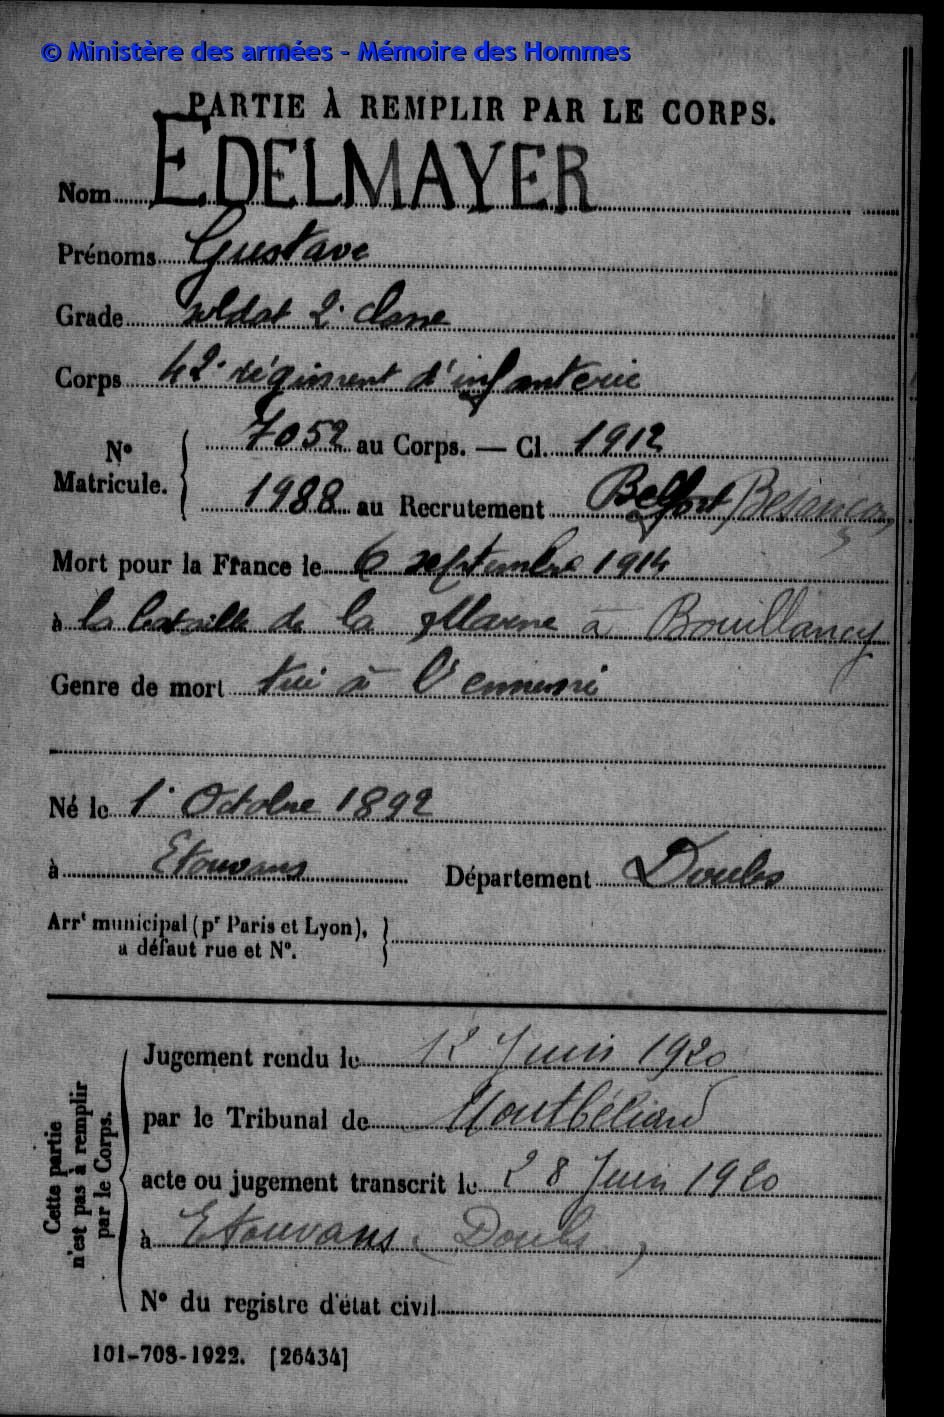 © Ministère des armées - Mémoire des Hommes
PARTIE À REMPLIR PAR LE CORPS.
Nom EDELMAYER
Prénoms Gustave
Grade soldat 2e classe
Corps 42e régiment d'infanterie
N° Matricule. { 7052 au Corps. — Cl. 1912
1988 au Recrutement Belfort Besançon
Mort pour la France le 6 septembre 1914
à la bataille de la Marne à Bouillancy
Genre de mort tué à l'ennemi
Né le 1er Octobre 1892
à Etouvans Département Doubs
Arrt municipal (pr Paris et Lyon),
a défaut rue et N°. }
Cette partie n'est pas à remplir par le Corps. {
Jugement rendu le 12 Juin 1920
par le Tribunal de Montbéliard
acte ou jugement transcrit le 28 Juin 1920
à Etouvans (Doubs)
N° du registre d'état civil
101-708-1922. [26434]